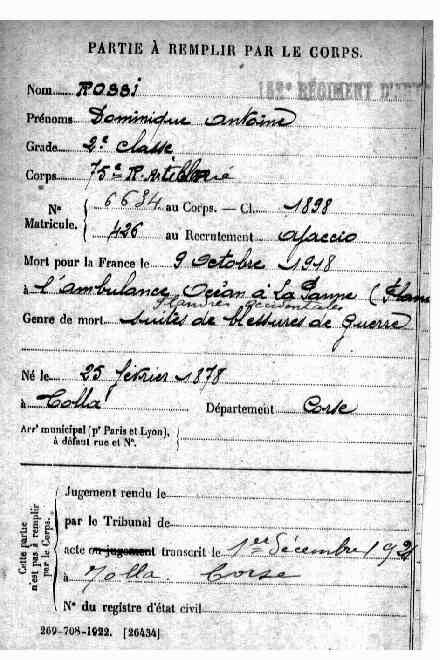 PARTIE À REMPLIR PAR LE CORPS.
152e RÉGIMENT
Nom ROSSI
Prénoms Dominique Antoine
Grade 2e classe
Corps 75e R. Artillerie
No Matricule. 6634 au Corps. — Cl. 1898
426 au Recrutement Ajaccio
Mort pour la France le 9 Octobre 1918
à l'ambulance Océan à La Panne (
Flandres occidentales
Genre de mort suites de blessures de Guerre
Né le 25 février 1878
à Tolla Département Corse
Arrt municipal (pr Paris et Lyon),
à défaut rue et No.
Cette partie
n'est pas à remplir
par le Corps.
Jugement rendu le
par le Tribunal de
acte ou jugement transcrit le 1er décembre 1921
à Tolla Corse
No du registre d'état civil
269-708-1922. [26434]